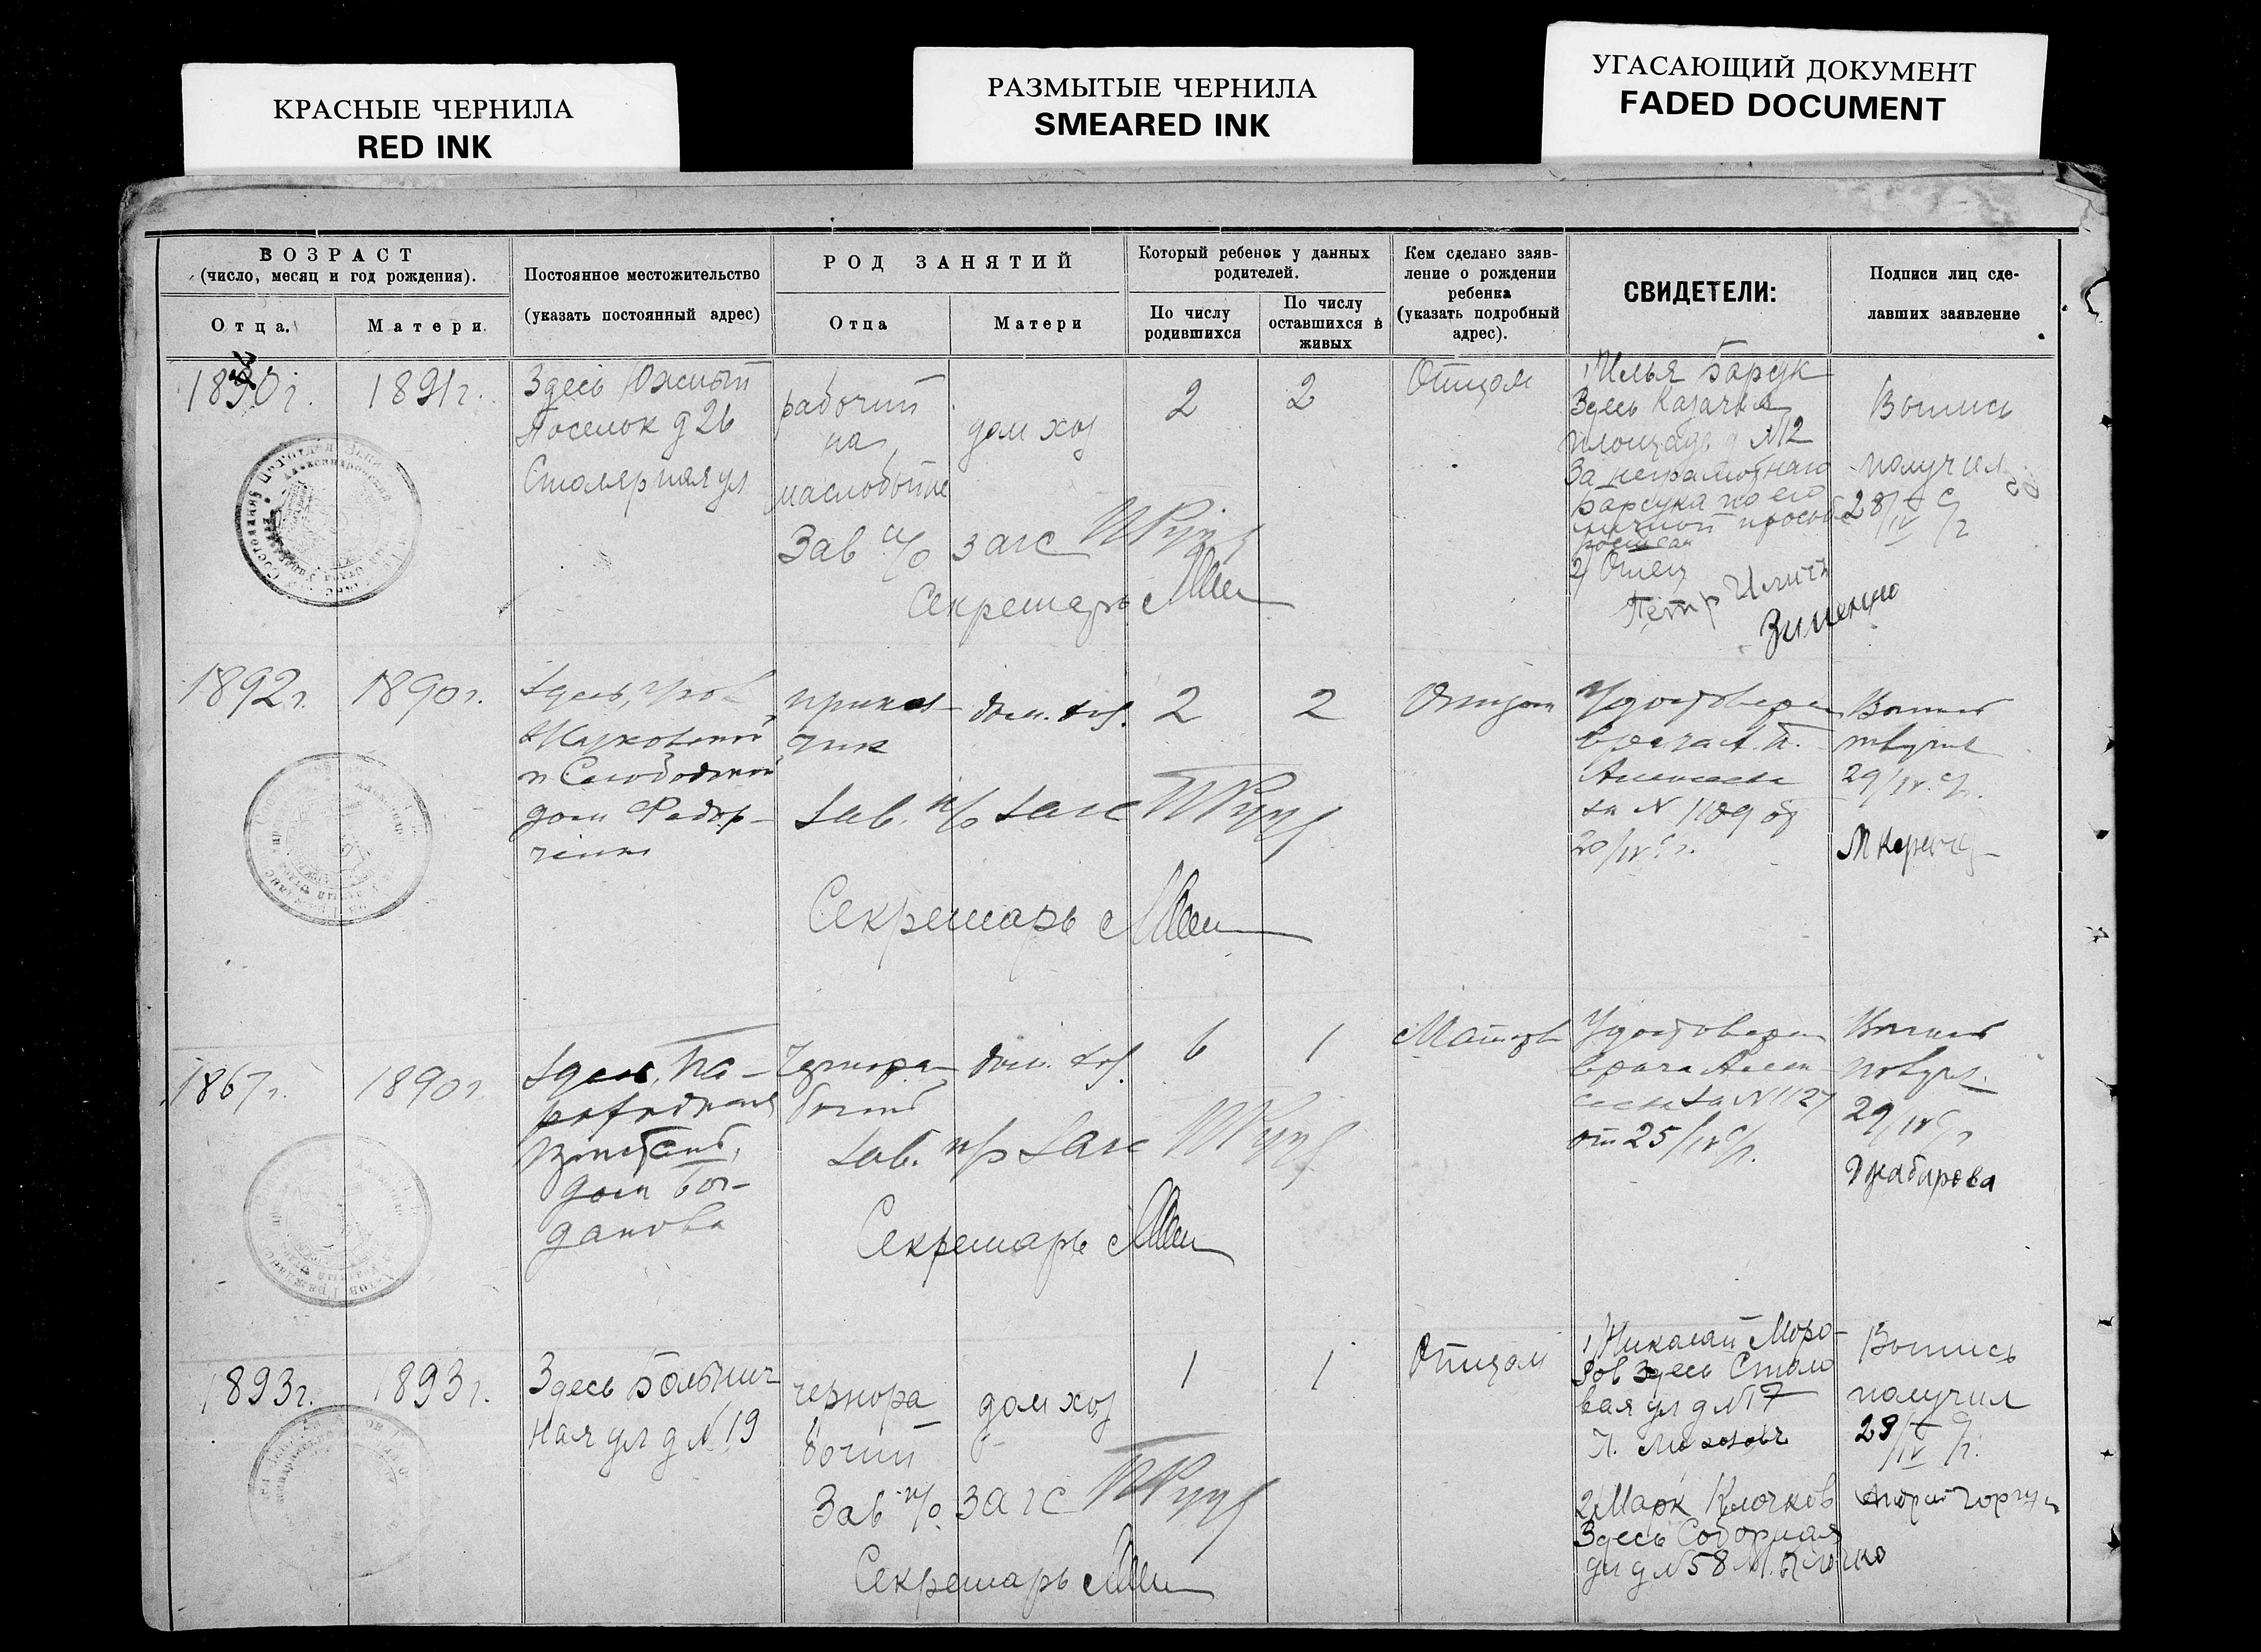 КРАСНЫЕ ЧЕРНИЛА
RED INK
РАЗМЫТЫЕ ЧЕРНИЛА
SMEARED INK
УГАСАЮЩИЙ ДОКУМЕНТ
FADED DOCUMENT
ВОЗРАСТ
(число, месяц и год рождения).
Отца.
Матери.
Постоянное местожительство
(указать постоянный адрес)
РОД ЗАНЯТИЙ
Отца
Матери
Который ребенок у данных
родителей.
По числу
родившихся
По числу
оставшихся в
живых
Кем сделано заяв-
ление о рождении
ребенка
(указать подробный
адрес).
СВИДЕТЕЛИ:
Подписи лиц сде-
лавших заявление
1891г.
Здесь Южный
Поселок д 26
Столярная ул
рабочий
на
маслобойне
дом хоз
2
2
Отцом
1) Илья Барсук
Здесь Казачья
площадь д №12
За неграмотнаго
Барсука по его
личной просьбе
2) Отец
Петр Ильич
Зименко
Выпись
получил
28/IV с/г
Зав п/о загс
Секретарь
1892г.
1890г.
Здесь, угол
и Слободской
дом Федор-
ченко
приказ-
чик
дом. хоз.
2
2
Отцом
Удостоверен
врача А. П.
за N 1109 от
20/IV с.г.
Выпись
получил
29/IV с/г.
Зав. п/о Загс
Секретарь
1867г.
1890г.
Здесь, Па-
дом Бог-
данова
Чернора-
бочий
дом. хоз.
6
1
Матерью
Удостоверен
врача Алек-
сеева за N 1127
от 25/IV с/г.
Выпись
получ.
29/IV с/г
Джабарова
Зав. п/о Загс
Секретарь
1893г.
1893г.
Здесь Больнич
ная ул д N 19
чернора
бочий
дом хоз
1
1
Отцом
1) Николай Моро-
зов Здесь Столо
вая ул д №17
Н. Морозовъ
2) Марк Клочков
Здесь Соборная
ул д №58 М. Клочко
Выпись
получил
28/IV с/г.
Зав п/о. загс
Секретарь